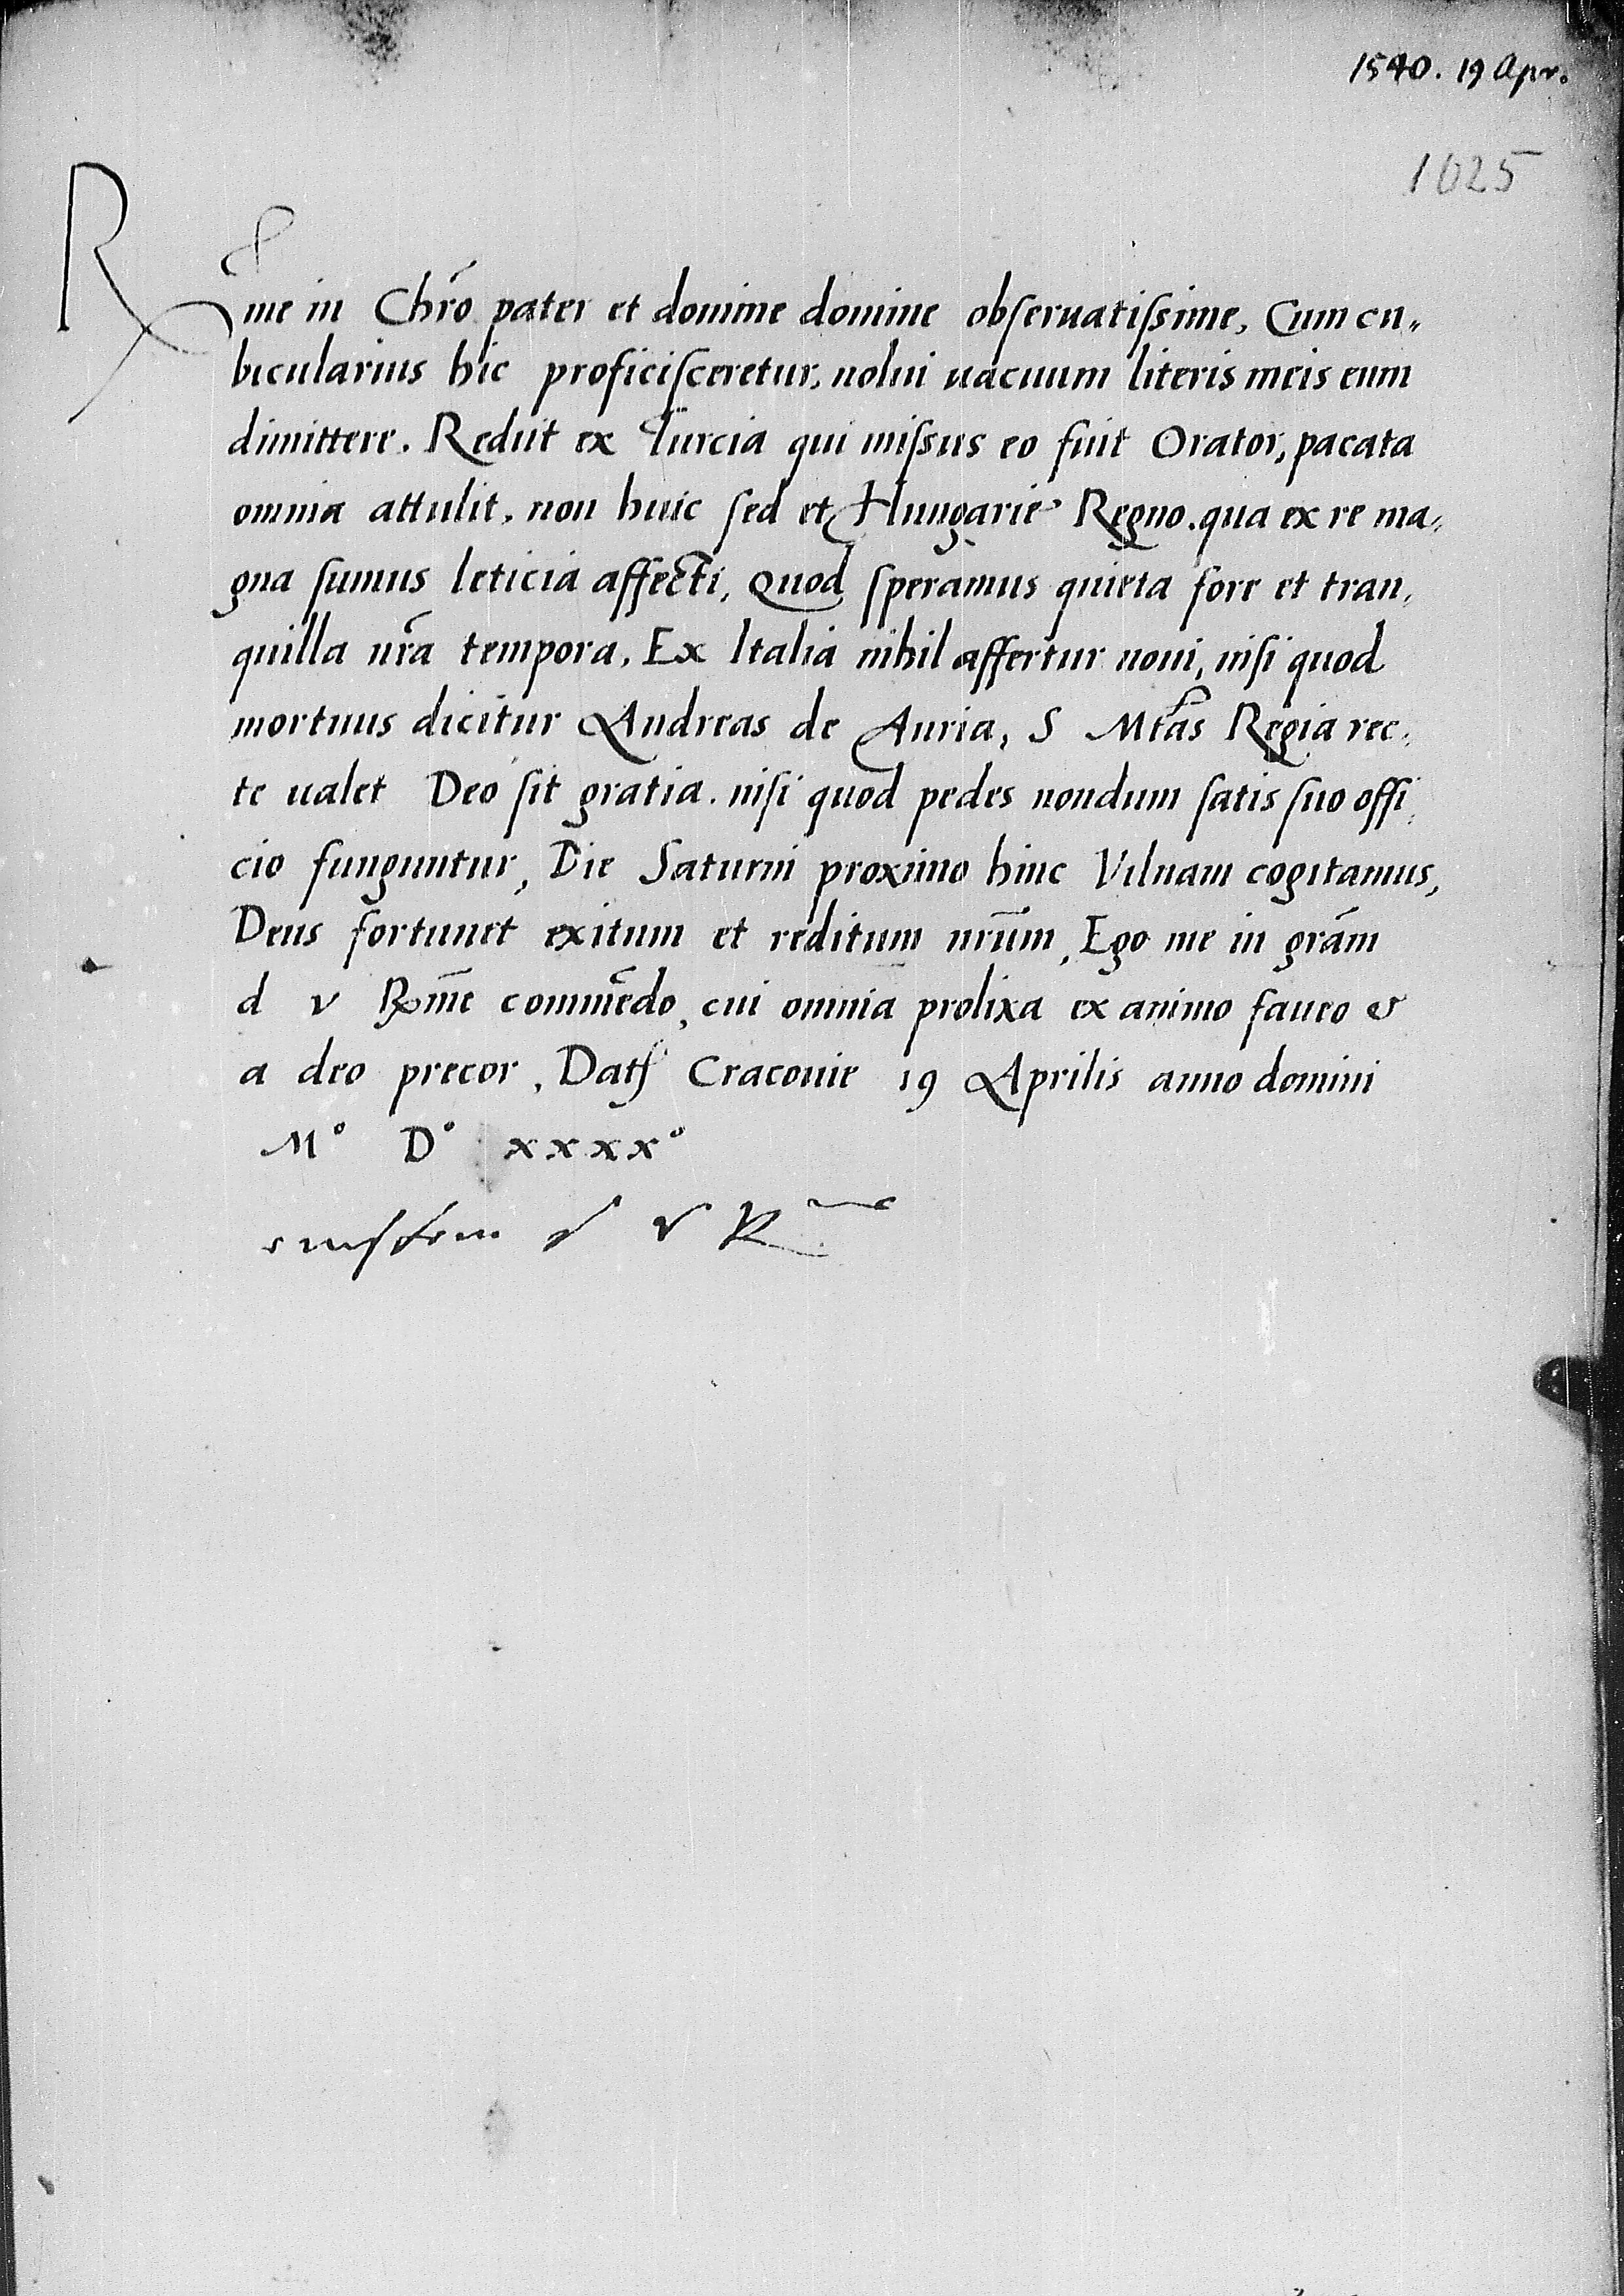 1540. 19 Apr.
1025
Rme in Chro pater et domine domine obseruatissime, Cum cu„
bicularius hic proficisceretur, nolui uacuum literis meis eum
dimittere. Rediit ex Turcia qui missus eo fuit Orator, pacata
omnia attulit, non huic sed et Hungarie Regno. qua ex re ma„
gna sumus leticia affecti, Quod speramus quieta fore et tran„
quilla nra tempora, Ex Italia nihil affertur noui, nisi quod
mortuus dicitur Andreas de Auria, S Mtas Regia rec„
te ualet Deo sit gratia. nisi quod pedes nondum satis suo offi„
cio funguntur, Die Saturni proximo hinc Vilnam cogitamus,
Deus fortunet exitum et reditum nrum, Ego me in gram
d v Rme commedo, cui omnia prolixa ex animo faueo &
a deo precor, Dat Cracouie 19 Aprilis anno domini
M° D° xxxx°
eiusdem d v Rme